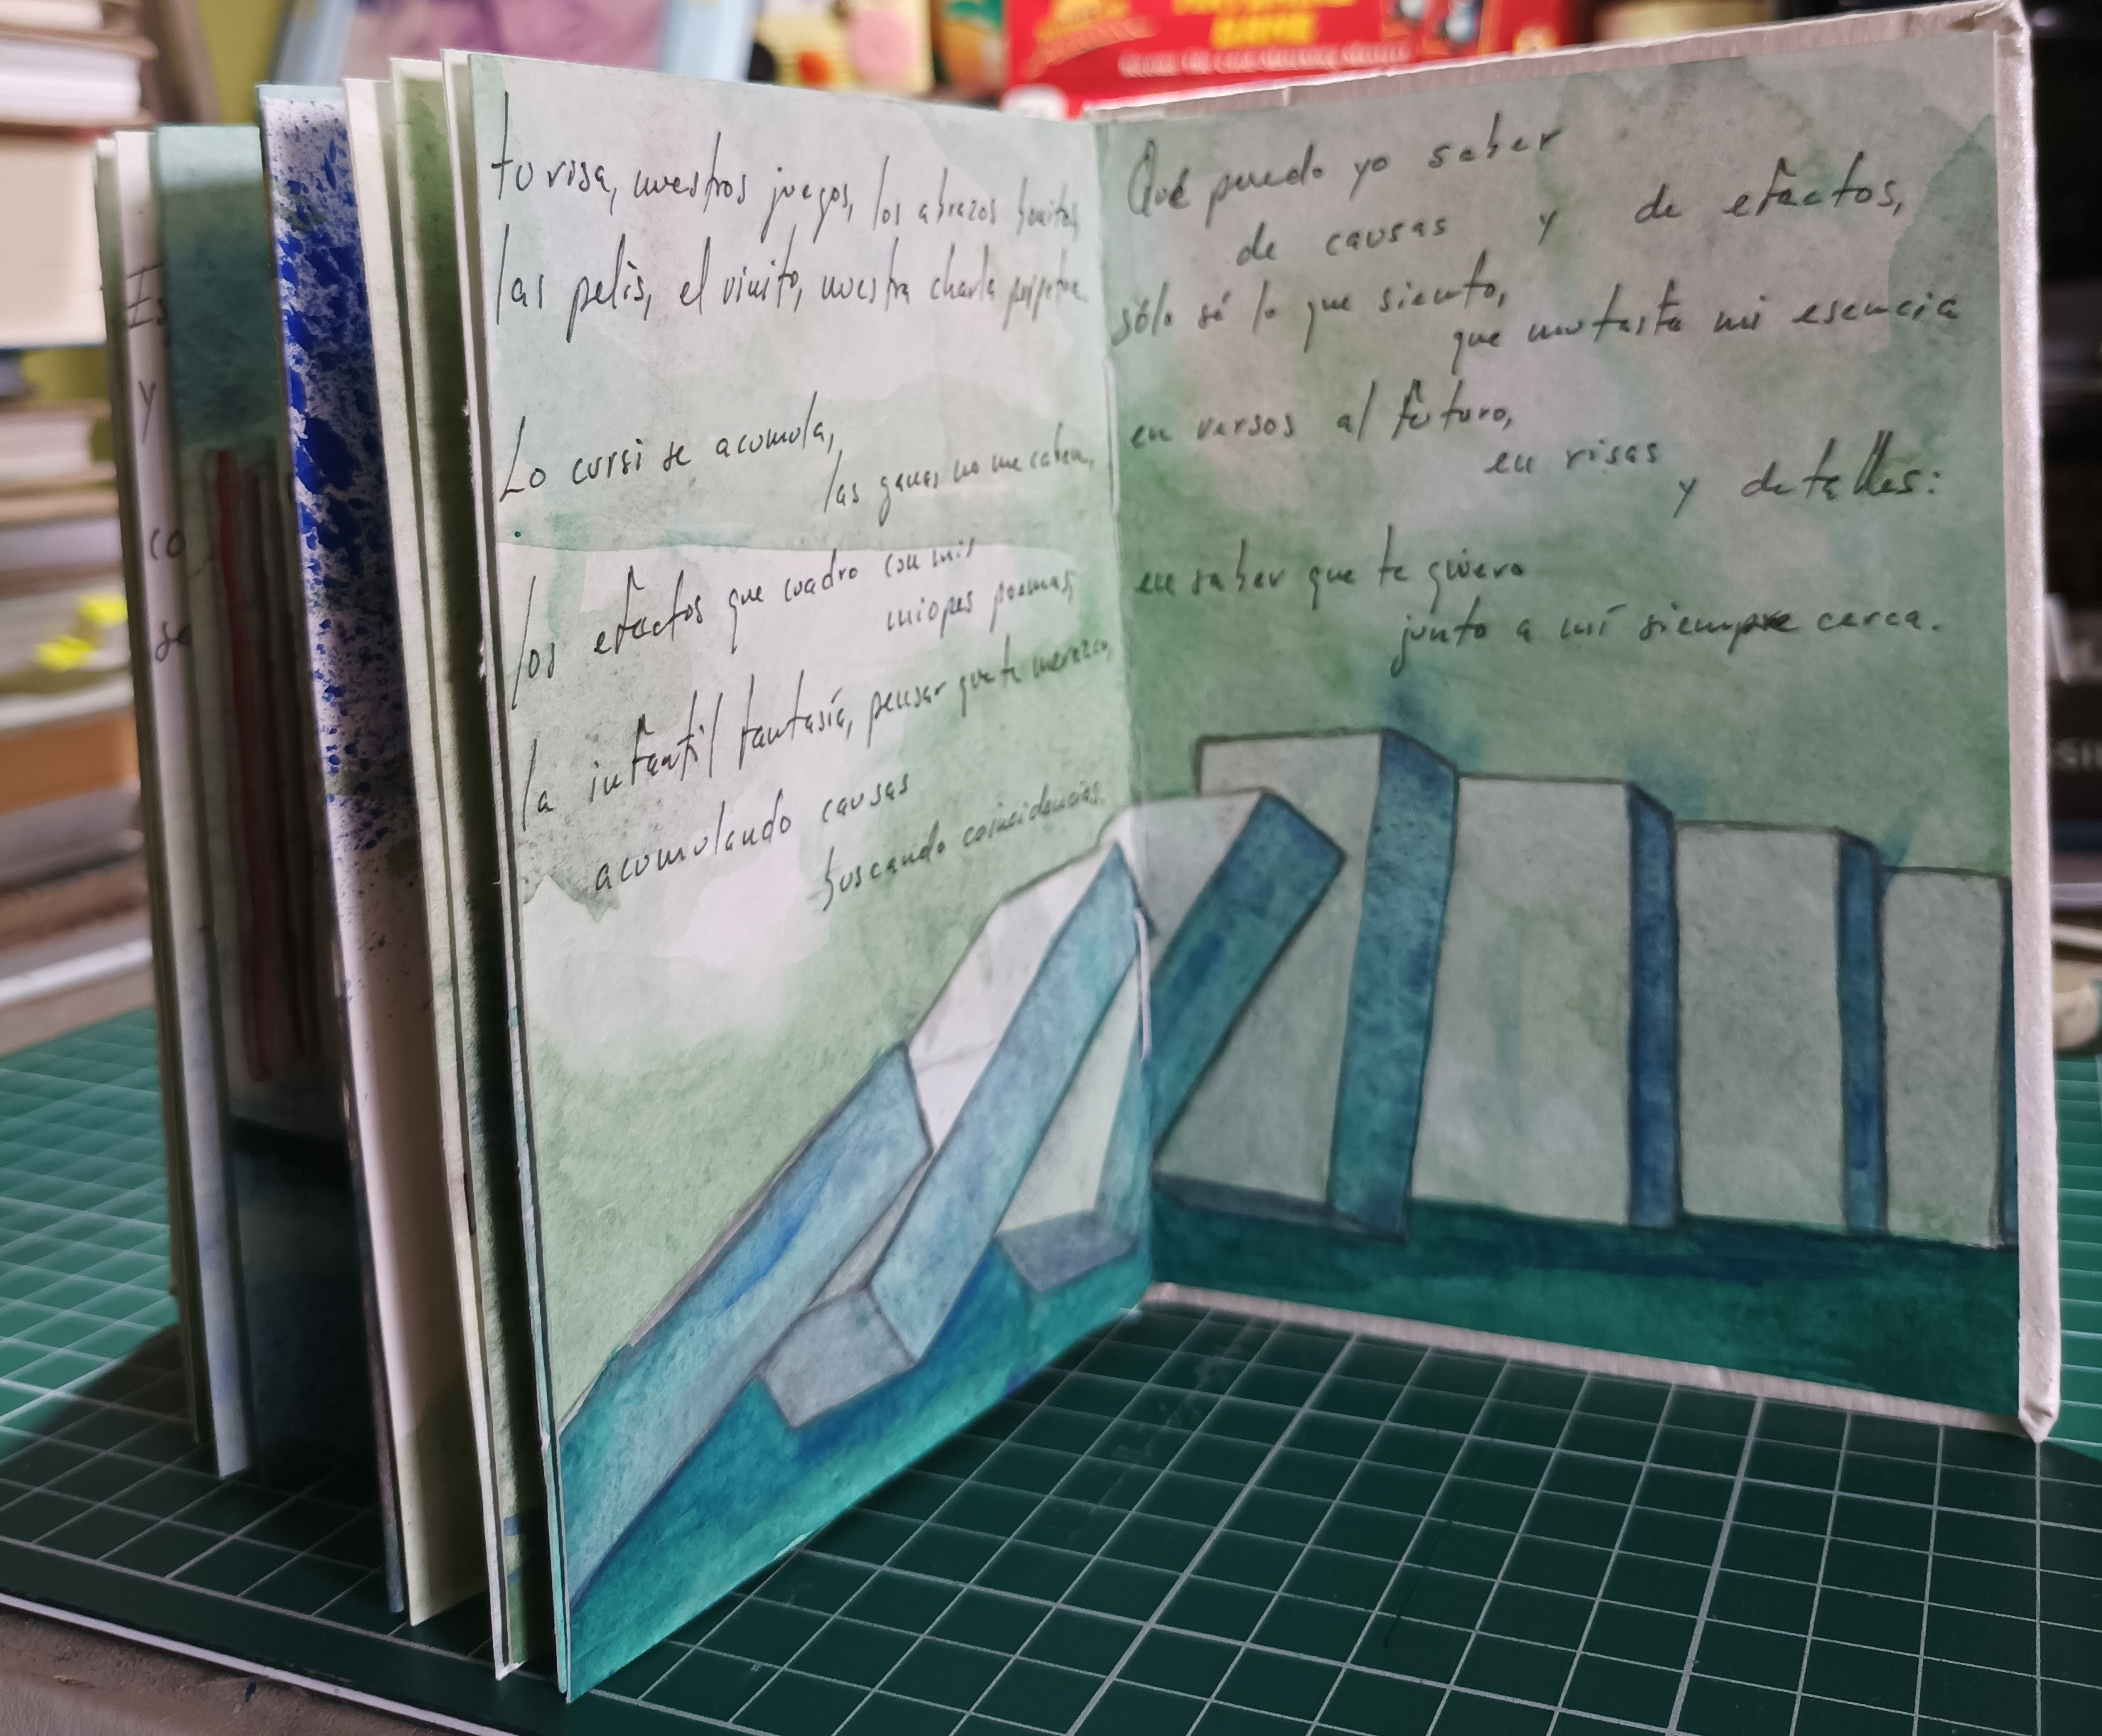 tu risa, nuestros juegos, los abrazos bonitos,
las pelis, el vinito, nuestra charla perpetua.
Lo cursi se acumula,
las ganas no me caben,
los efectos que cuadro con mis
miopes poemas,
la infantil fantasía, pensar que te merezco,
acumulando causas
buscando coincidencias.
Qué puedo yo saber
de causas y de efectos,
sólo sé lo que siento,
que mutaste mi esencia
en versos al futuro,
en risas
y detalles:
en saber que te quiero
junto a mí siempre cerca.
y
co
se
GAME